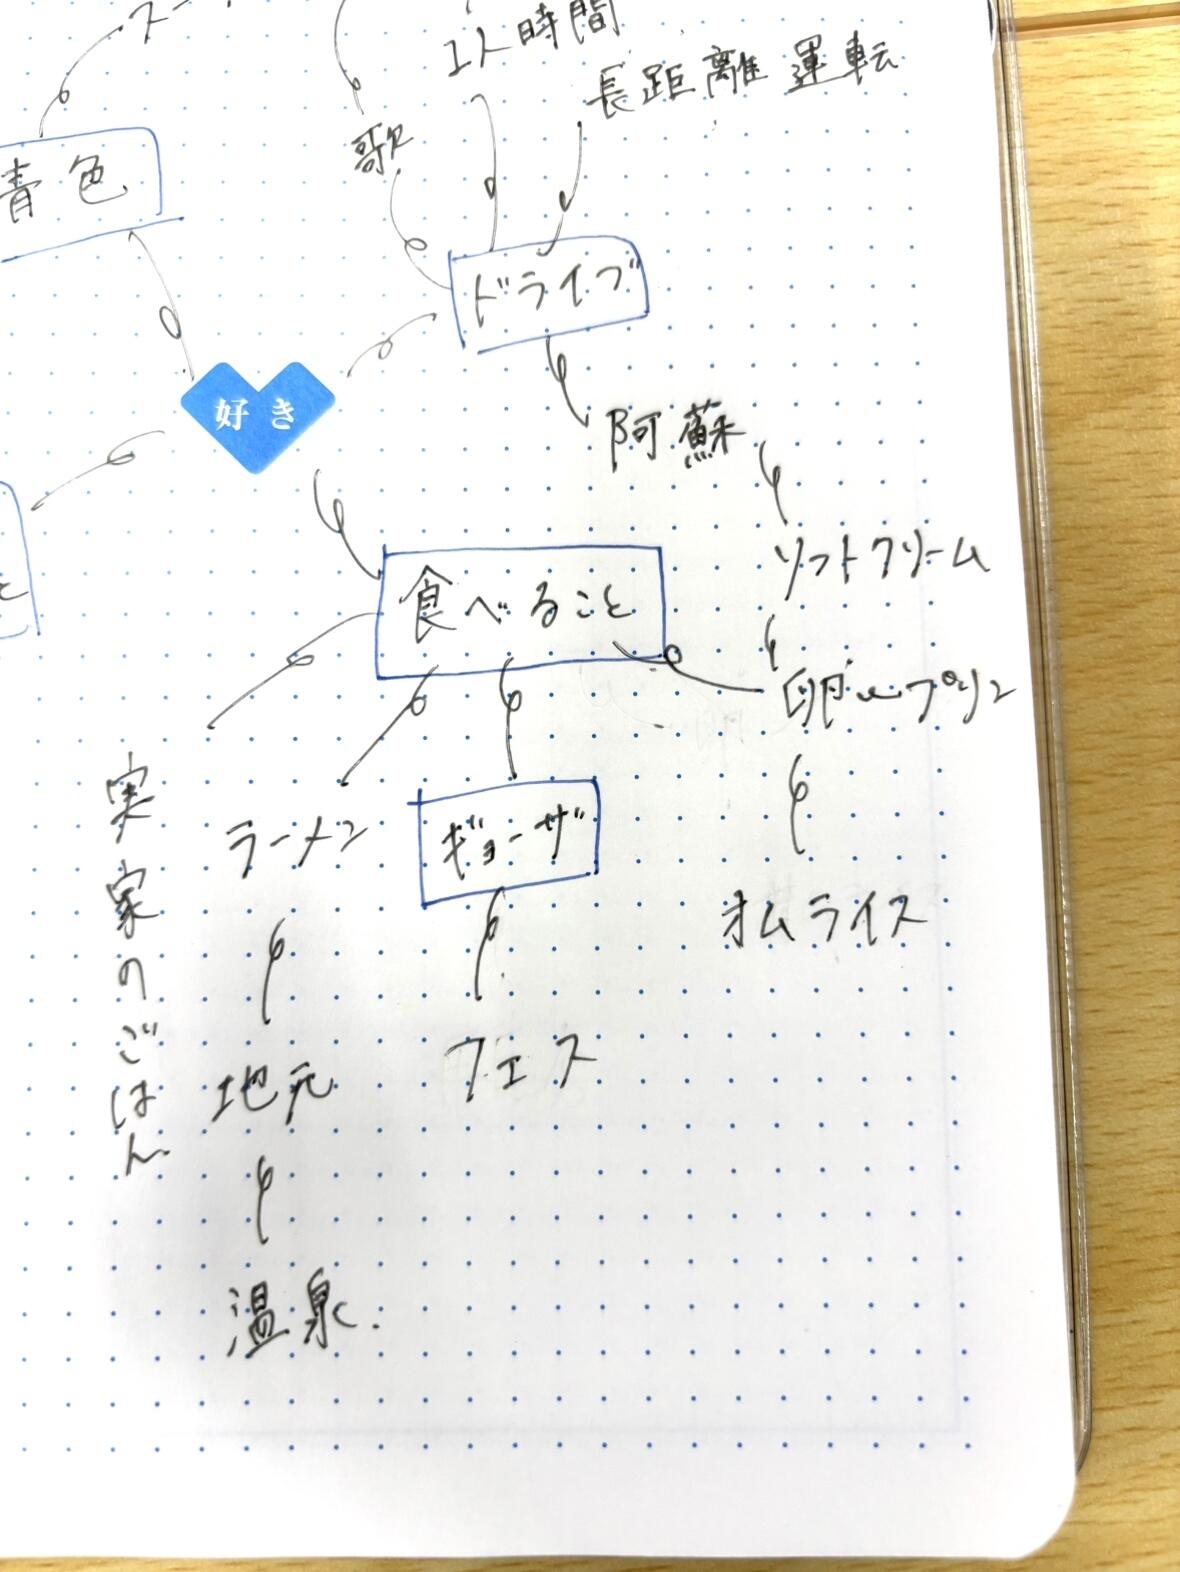 スー
1人時間
長距離運転
歌
青色
ドライブ
好き
阿蘇
ソフトクリーム
食べること
卵んプリン
実家のごはん
ラーメン
ギョーザ
オムライス
地元
フェス
温泉.